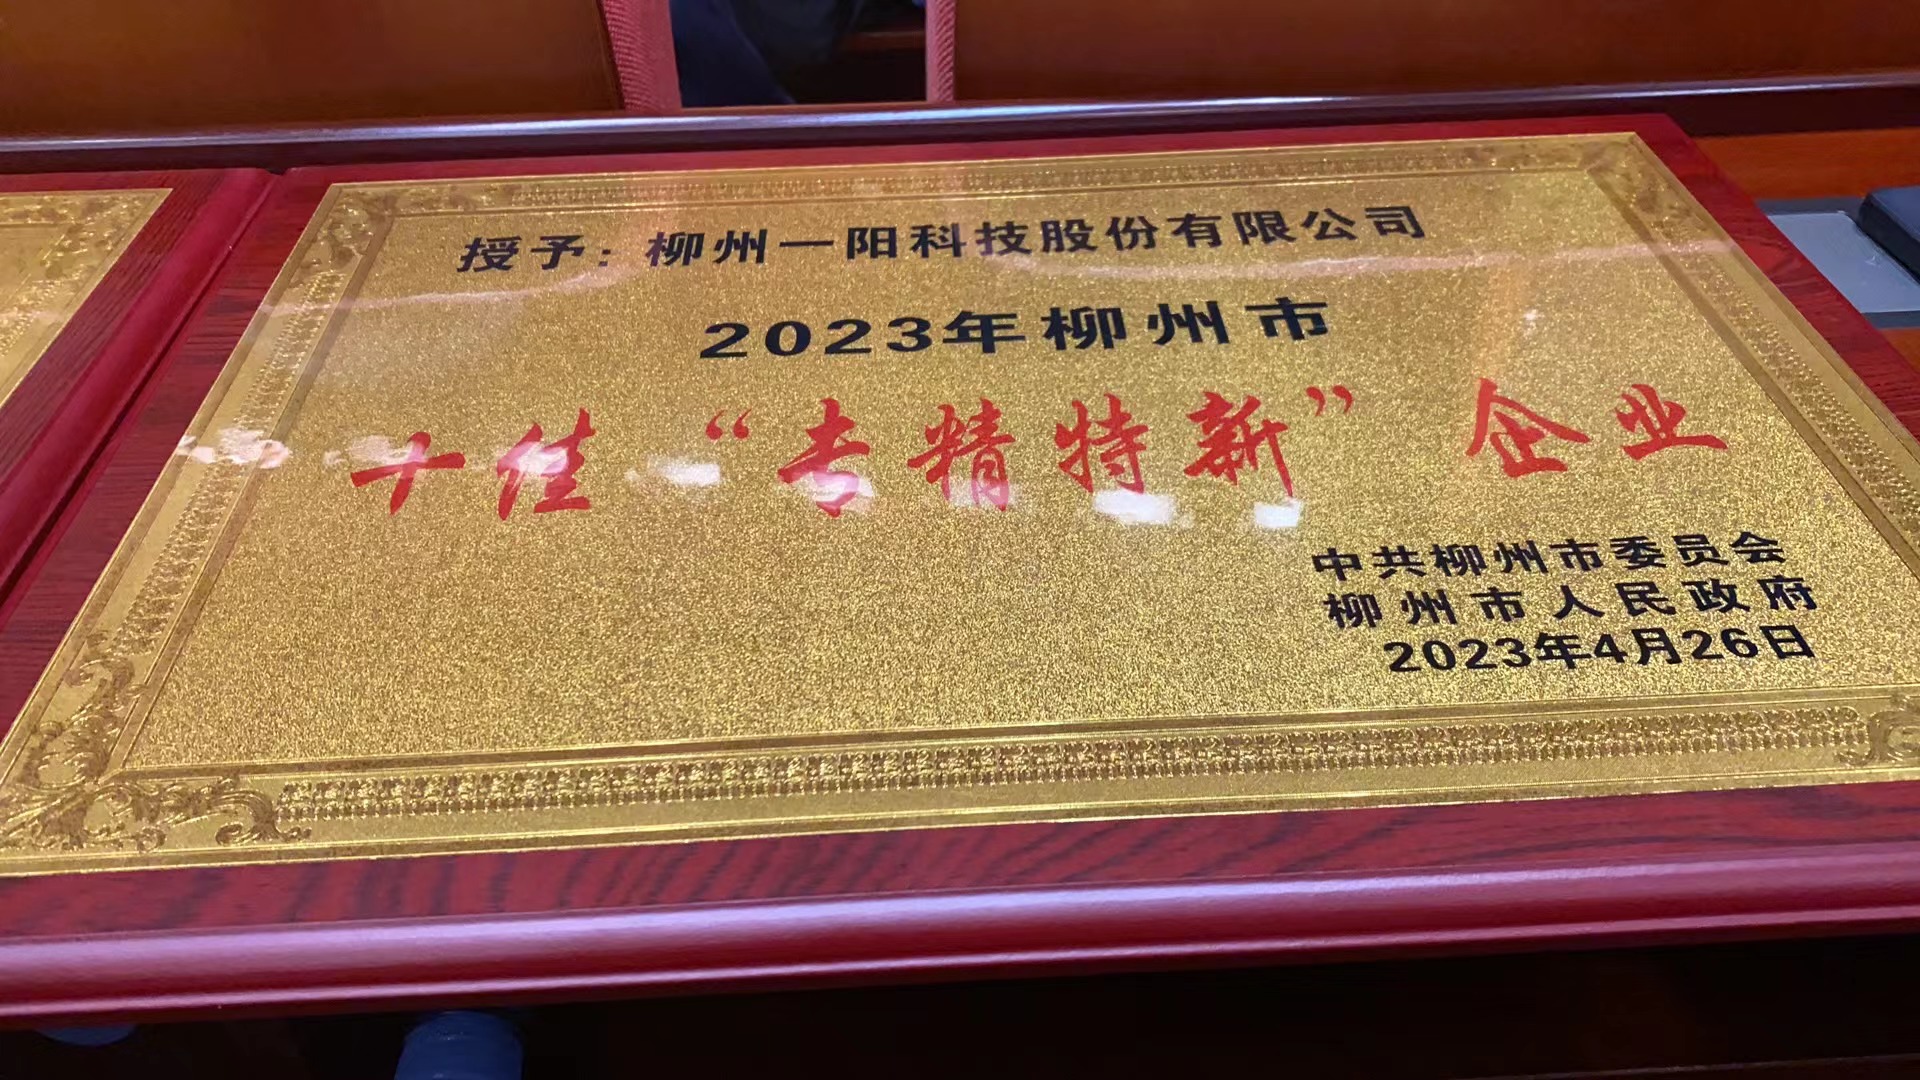 授予：柳州一阳科技股份有限公司
2023年柳州市
十佳“专精特新”企业
中共柳州市委员会
柳州市人民政府
2023年4月26日